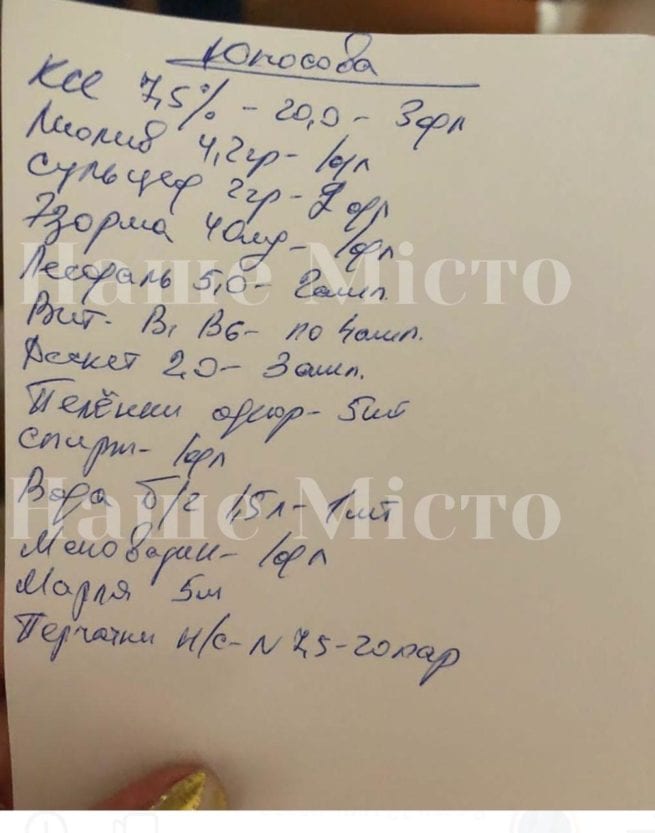 Юносова
KCl 7,5% - 20,0 - 3фл
Лиолив 4,2гр - 1фл
Сульцеф 2гр - 2фл
Эзорма 40мг - 1фл
Лесфаль 5,0 - 2амп.
Вит. В1 В6 - по 4амп.
Дескет 2,0 - 3амп.
Пелёнки однор - 5шт
Спирт - 1фл
Вода б/г 1,5л - 1шт
Меновазин - 1фл
Марля 5м
Перчатки н/с - N 7,5 - 20пар
Наше Місто
Наше Місто